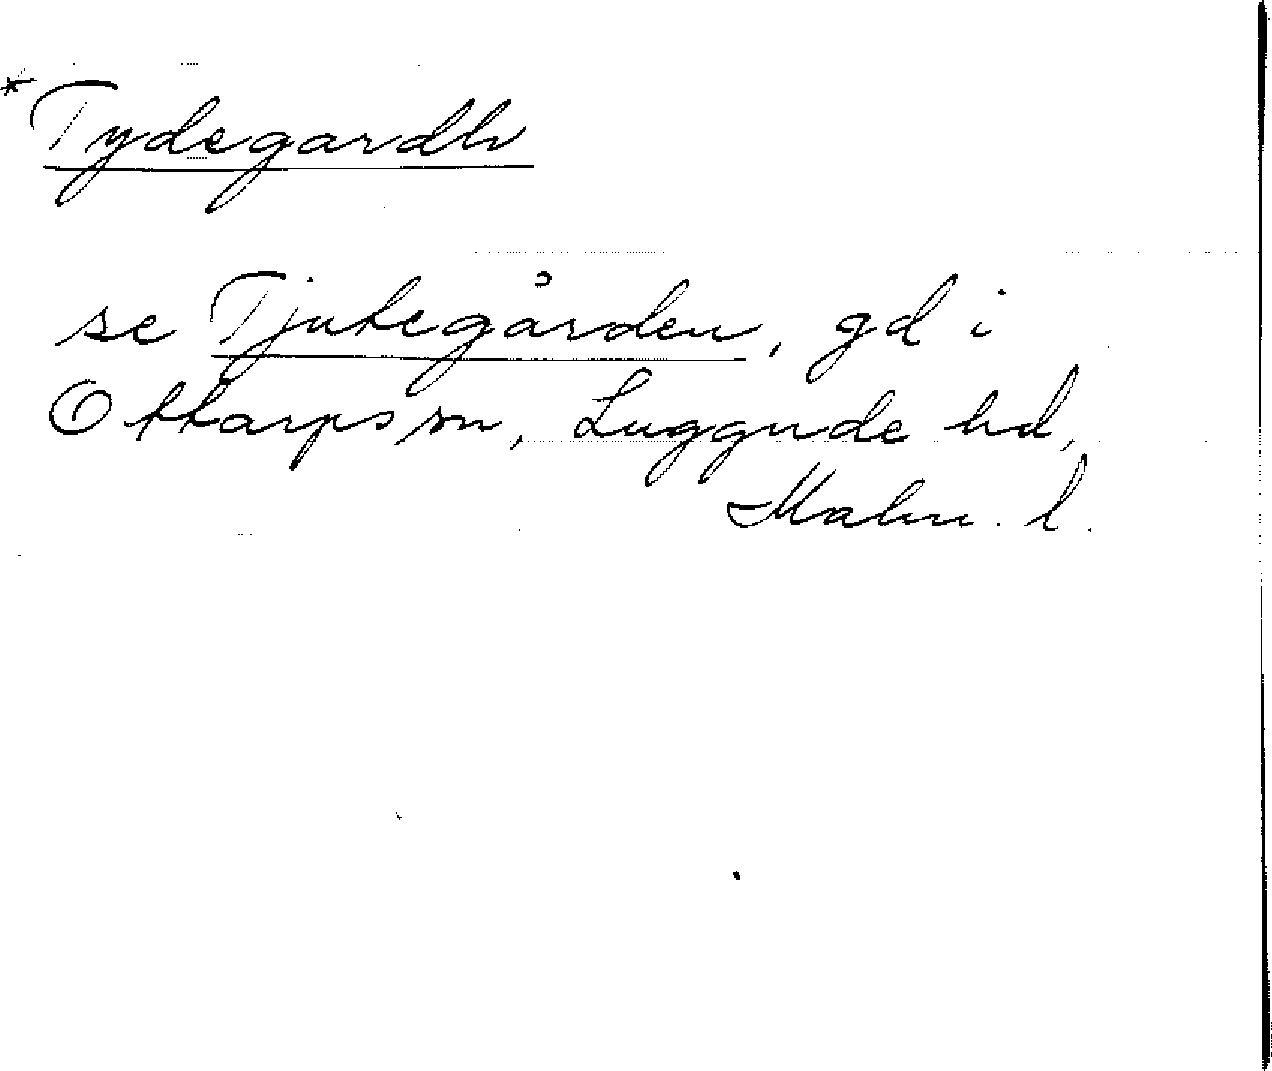 *Tydegardh
se Tjutegården, gd i
Ottarps sn, Luggude hd,
Malm. l.